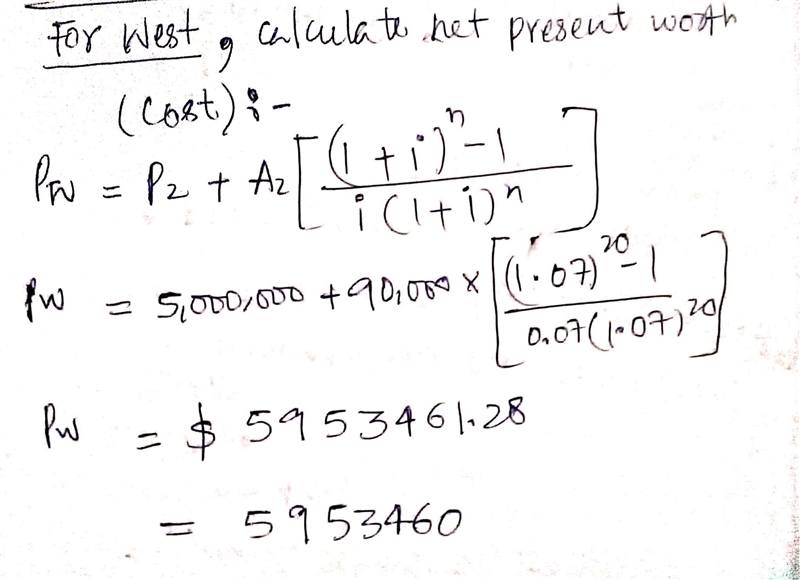 For West, calculate net present worth
(Cost) :-
PW = P2 + A2 [ (1 + i)^n - 1 / i (1 + i)^n ]
PW = 5,000,000 + 90,000 × [ (1.07)^20 - 1 / 0.07 (1.07)^20 ]
PW = $ 5953461.28
= 5953460